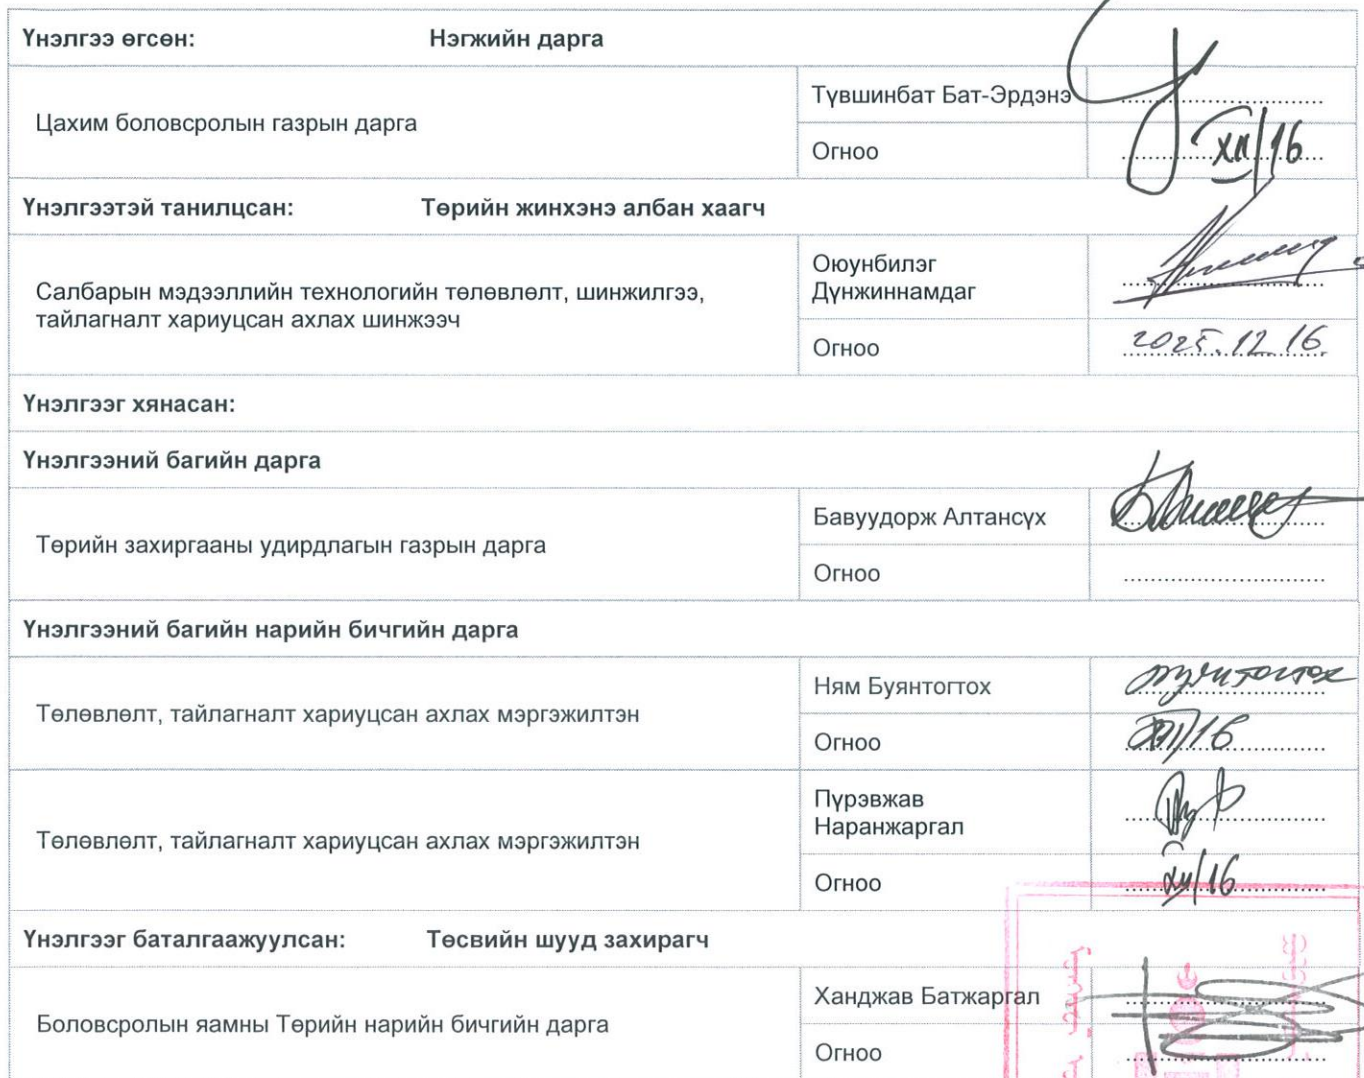 Үнэлгээ өгсөн: Нэгжийн дарга
Цахим боловсролын газрын дарга
Түвшинбат Бат-Эрдэнэ
Огноо
XII/16
Үнэлгээтэй танилцсан: Төрийн жинхэнэ албан хаагч
Салбарын мэдээллийн технологийн төлөвлөлт, шинжилгээ,
тайлагналт хариуцсан ахлах шинжээч
Оюунбилэг
Дүнжиннамдаг
Огноо
2025.12.16.
Үнэлгээг хянасан:
Үнэлгээний багийн дарга
Төрийн захиргааны удирдлагын газрын дарга
Бавуудорж Алтансүх
Огноо
Үнэлгээний багийн нарийн бичгийн дарга
Төлөвлөлт, тайлагналт хариуцсан ахлах мэргэжилтэн
Ням Буянтогтох
Огноо
XII/16
Төлөвлөлт, тайлагналт хариуцсан ахлах мэргэжилтэн
Пүрэвжав
Наранжаргал
Огноо
XII/16
Үнэлгээг баталгаажуулсан: Төсвийн шууд захирагч
Боловсролын яамны Төрийн нарийн бичгийн дарга
Ханджав Батжаргал
Огноо